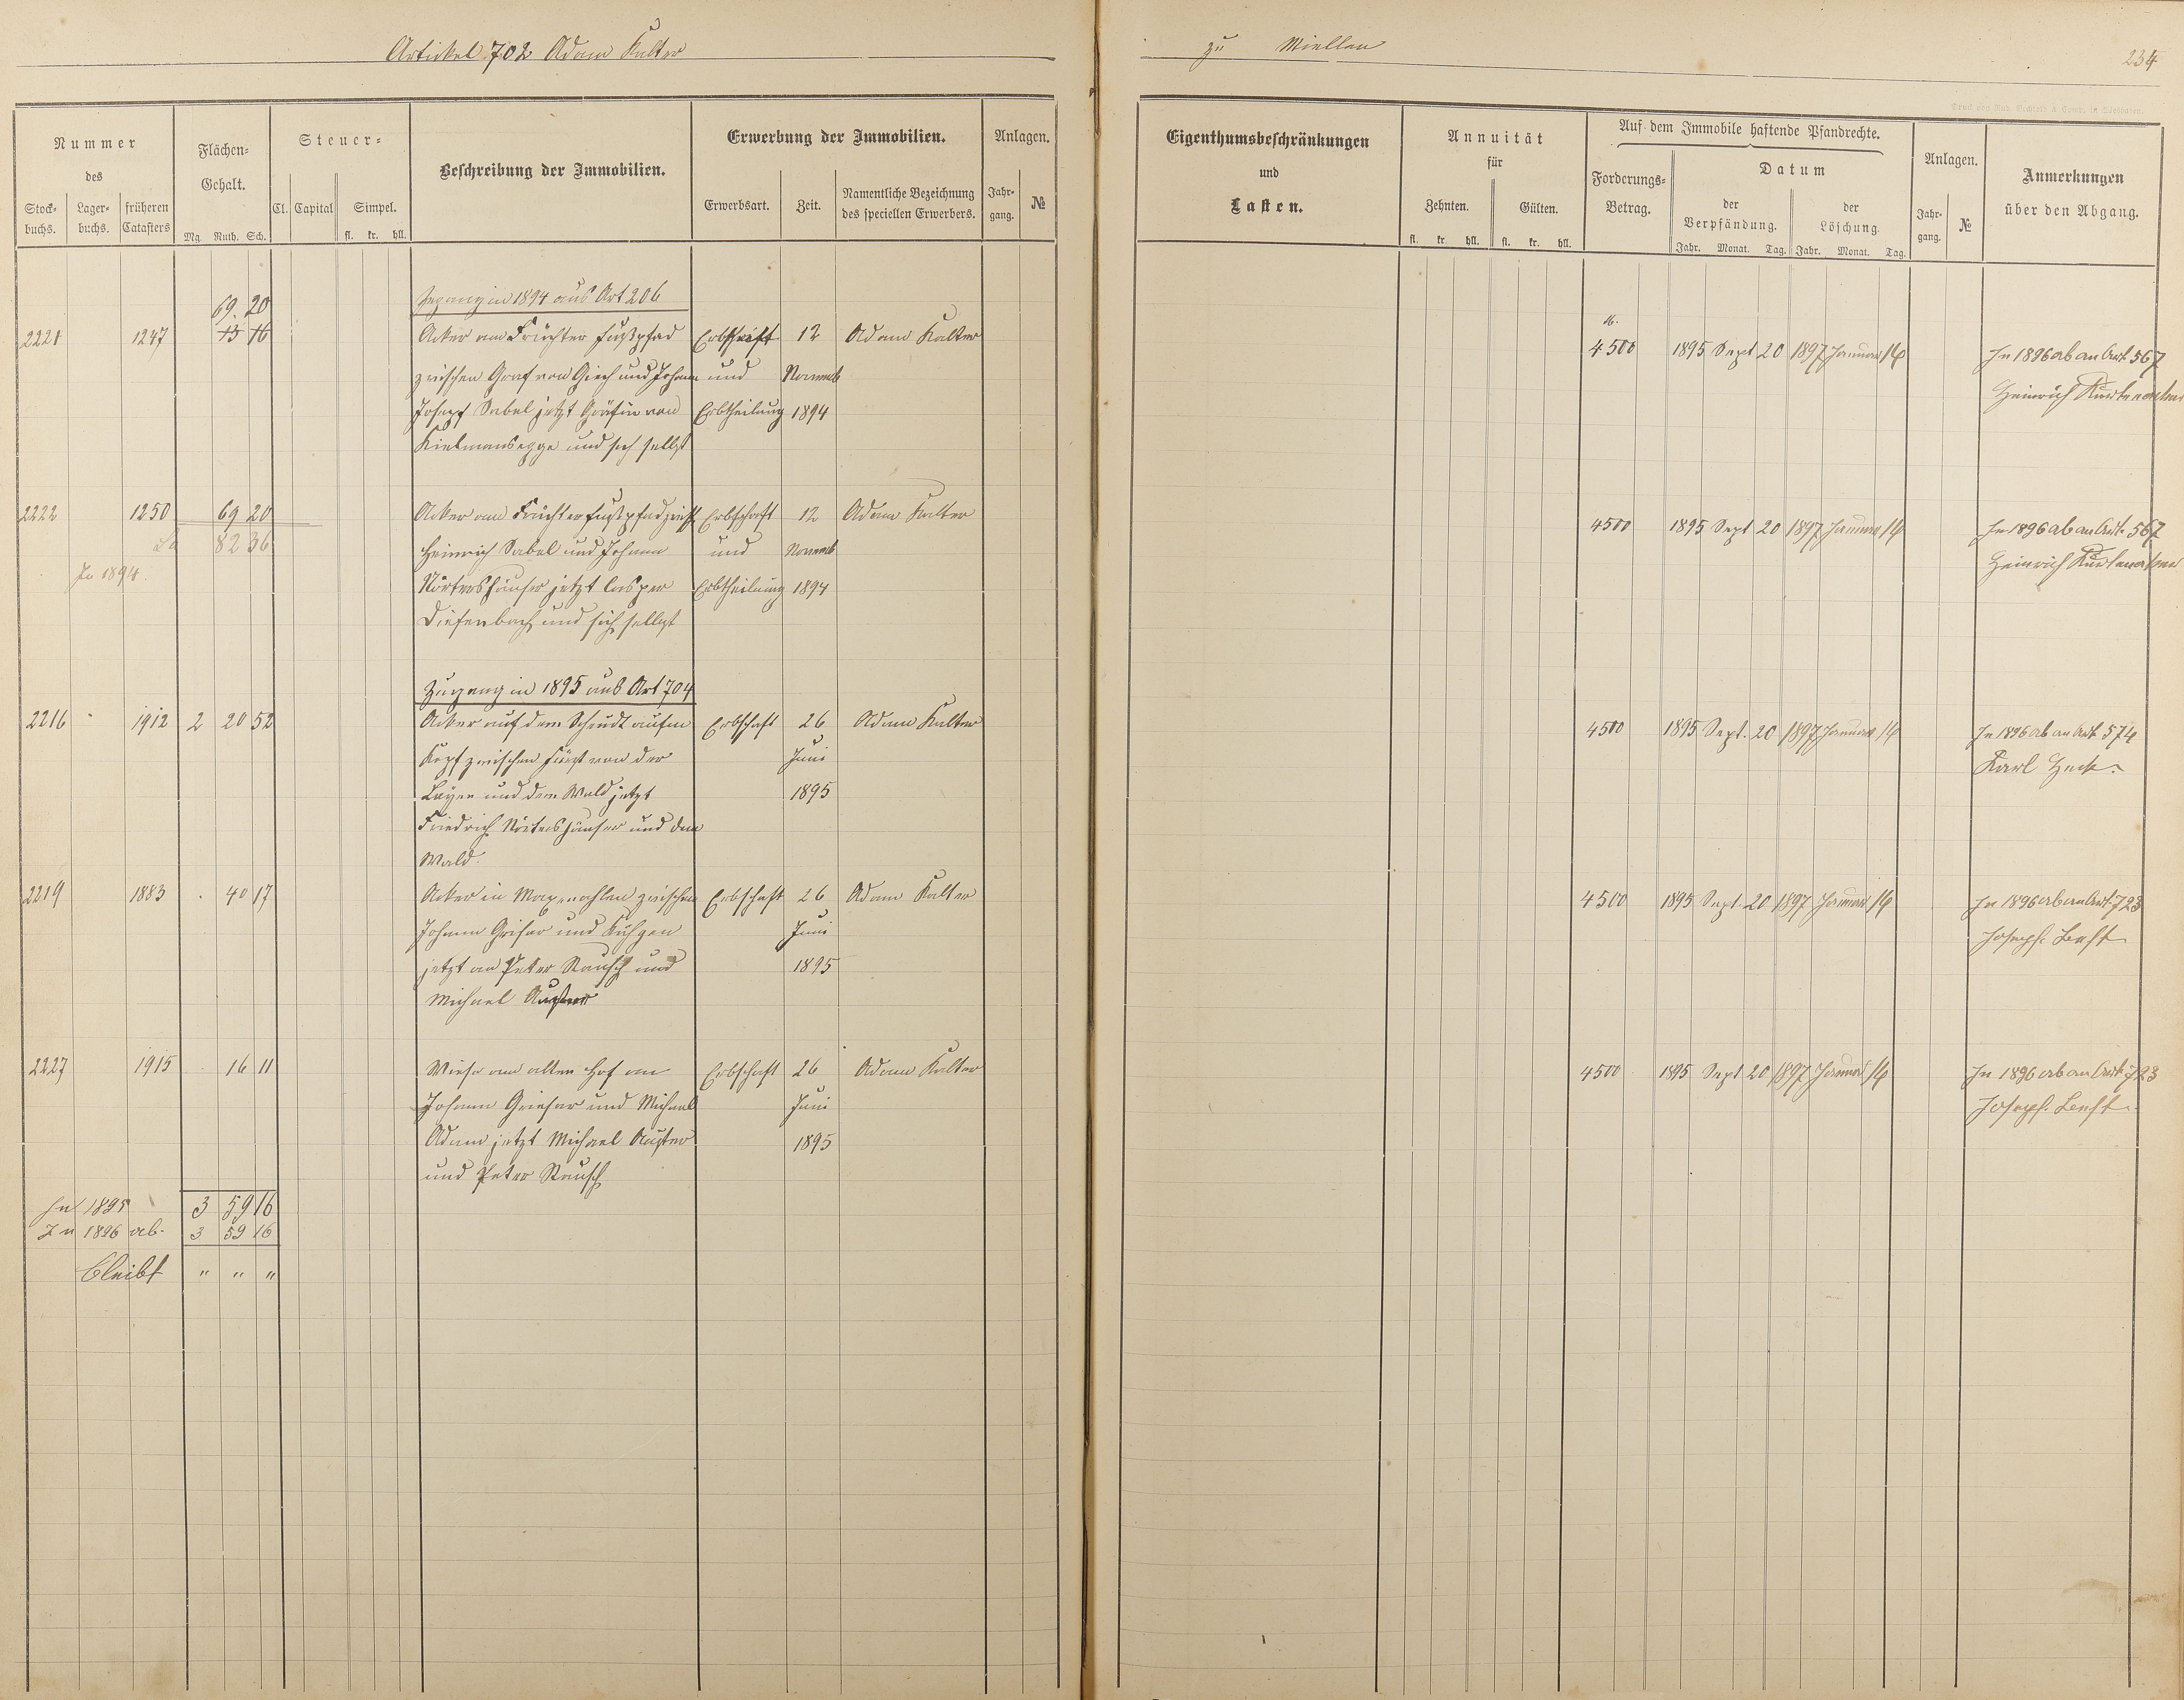 Artikel 702 Adam Kalter
zu Miellen
234
Nummer
des
Stock-
buchs.
Lager-
buchs.
früheren
Catasters
Flächen-
Gehalt.
Mg. Ruth. Sch.
Steuer-
Cl. Capital Simpel.
fl. kr. hll.
Beschreibung der Immobilien.
Erwerbung der Immobilien.
Erwerbsart. Zeit.
Namentliche Bezeichnung
des speciellen Erwerbers.
Anlagen.
Jahr-
gang.
№
Eigenthumsbeschränkungen
und
Lasten.
Annuität
für
Zehnten. Gülten.
fl. kr. hll. fl. kr. hll.
Auf dem Immobile haftende Pfandrechte.
Forderungs-
Betrag.
Datum
der
Verpfändung.
der
Löschung.
Jahr. Monat. Tag. Jahr. Monat. Tag.
Anlagen.
Jahr-
gang.
№
Anmerkungen
über den Abgang.
Zugang in 1894 aus Art 206
69. 20
2221 1247 13 16 Acker am Früchter Fußpfad Erbschaft 12 Adam Kalter
zwischen Graf von Giech und Johann und Novemb
Joseph Sabel jetzt Gräfin von Erbtheilung 1894
Kielmansegge und sich selbst
M.
4500 1895 Sept 20 1897 Januar 14 In 1896 ab an Art. 567
Heinrich
2222 1250 69 20 Acker am Früchter Fußpfad zwisch Erbschaft 12 Adam Kalter
82 36 Heinrich Sabel und Johann und Novemb
In 1894. Nörtershäuser jetzt Casper Erbtheilung 1894
Diefenbach und sich selbst
4500 1895 Sept 20 1897 Januar 14 In 1896 ab an Art. 567
Heinrich
Zugang in 1895 aus Art 704
2216 1912 2 20 52 Acker auf dem Scheudt aufm Erbschaft 26 Adam Kalter
Kopf zwischen Fürst von der Juni
Layen und dem Wald jetzt 1895
Friedrich Nörtershäuser und dem
Wald.
4500 1895 Sept. 20 1897 Januar 14 In 1896 ab an Art. 574
Karl Heck.
2219 1883 40 17 Acker in zwischen Erbschaft 26 Adam Kalter
Johann Griesar und Juni
jetzt an Peter Rausch und 1895
Michael Auster
4500 1895 Sept. 20 1897 Januar 14 In 1896 ab an Art. 723
Joseph
2227 1915 16 11 Wiese am alten Hof an Erbschaft 26 Adam Kalter
Johann Griesar und Michael Juni
Adam jetzt Michael Auster 1895
und Peter Rausch
4500 1895 Sept 20 1897 Januar 14 In 1896 ab an Art. 723
Joseph
In 1895 3 59 16
In 1896 ab. 3 59 16
bleibt " " "